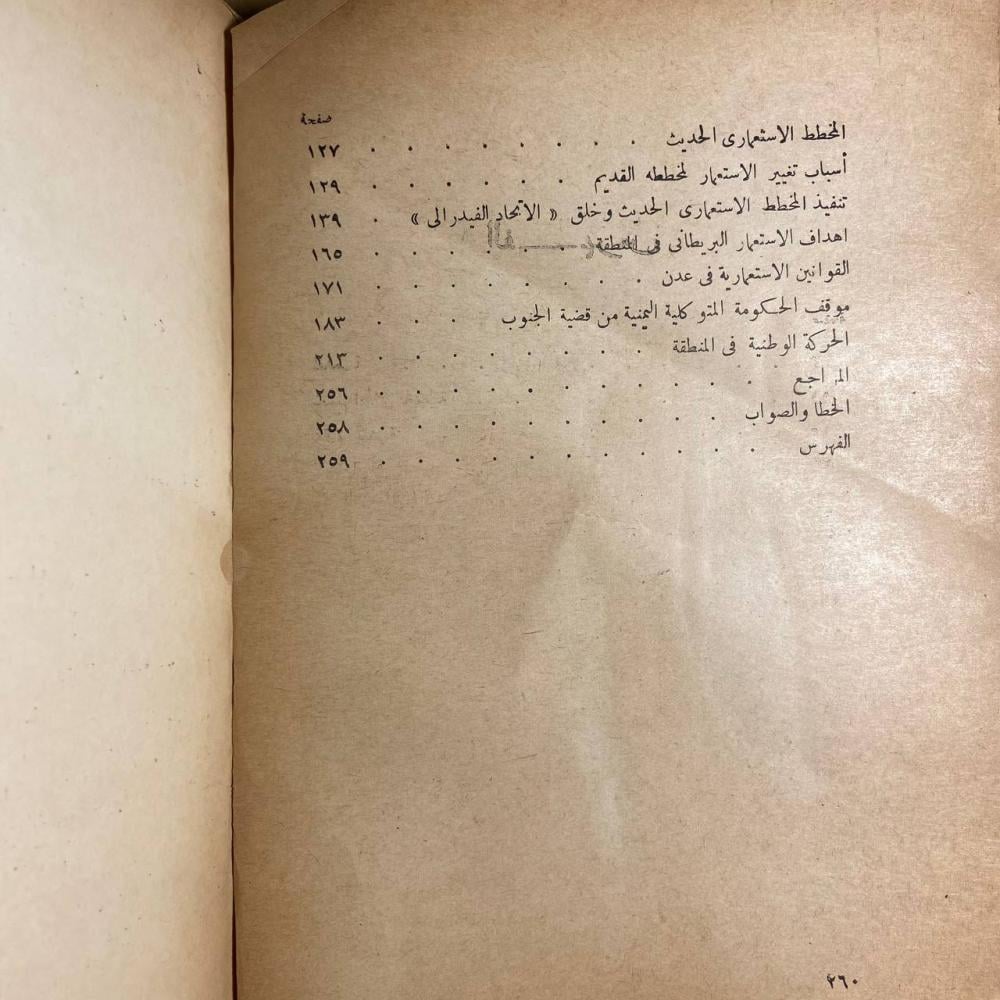 صفحة
المخطط الاستعمارى الحديث . . . . . . . . ١٢٧
أسباب تغيير الاستعمار لمخططه القديم . . . . . . ١٢٩
تنفيذ المخطط الاستعمارى الحديث وخلق « الاتحاد الفيدرالى » . ١٣٩
اهداف الاستعمار البريطانى فى المنطقة . . . . . . ١٦٥
القوانين الاستعمارية فى عدن . . . . . . . . ١٧١
موقف الحكومة المتوكلية اليمنية من قضية الجنوب . . . ١٨٣
الحركة الوطنية فى المنطقة . . . . . . . . ٢١٣
المراجع . . . . . . . . . . . ٢٥٦
الخطا والصواب . . . . . . . . . . ٢٥٨
الفهرس . . . . . . . . . . . ٢٥٩
٢٦٠